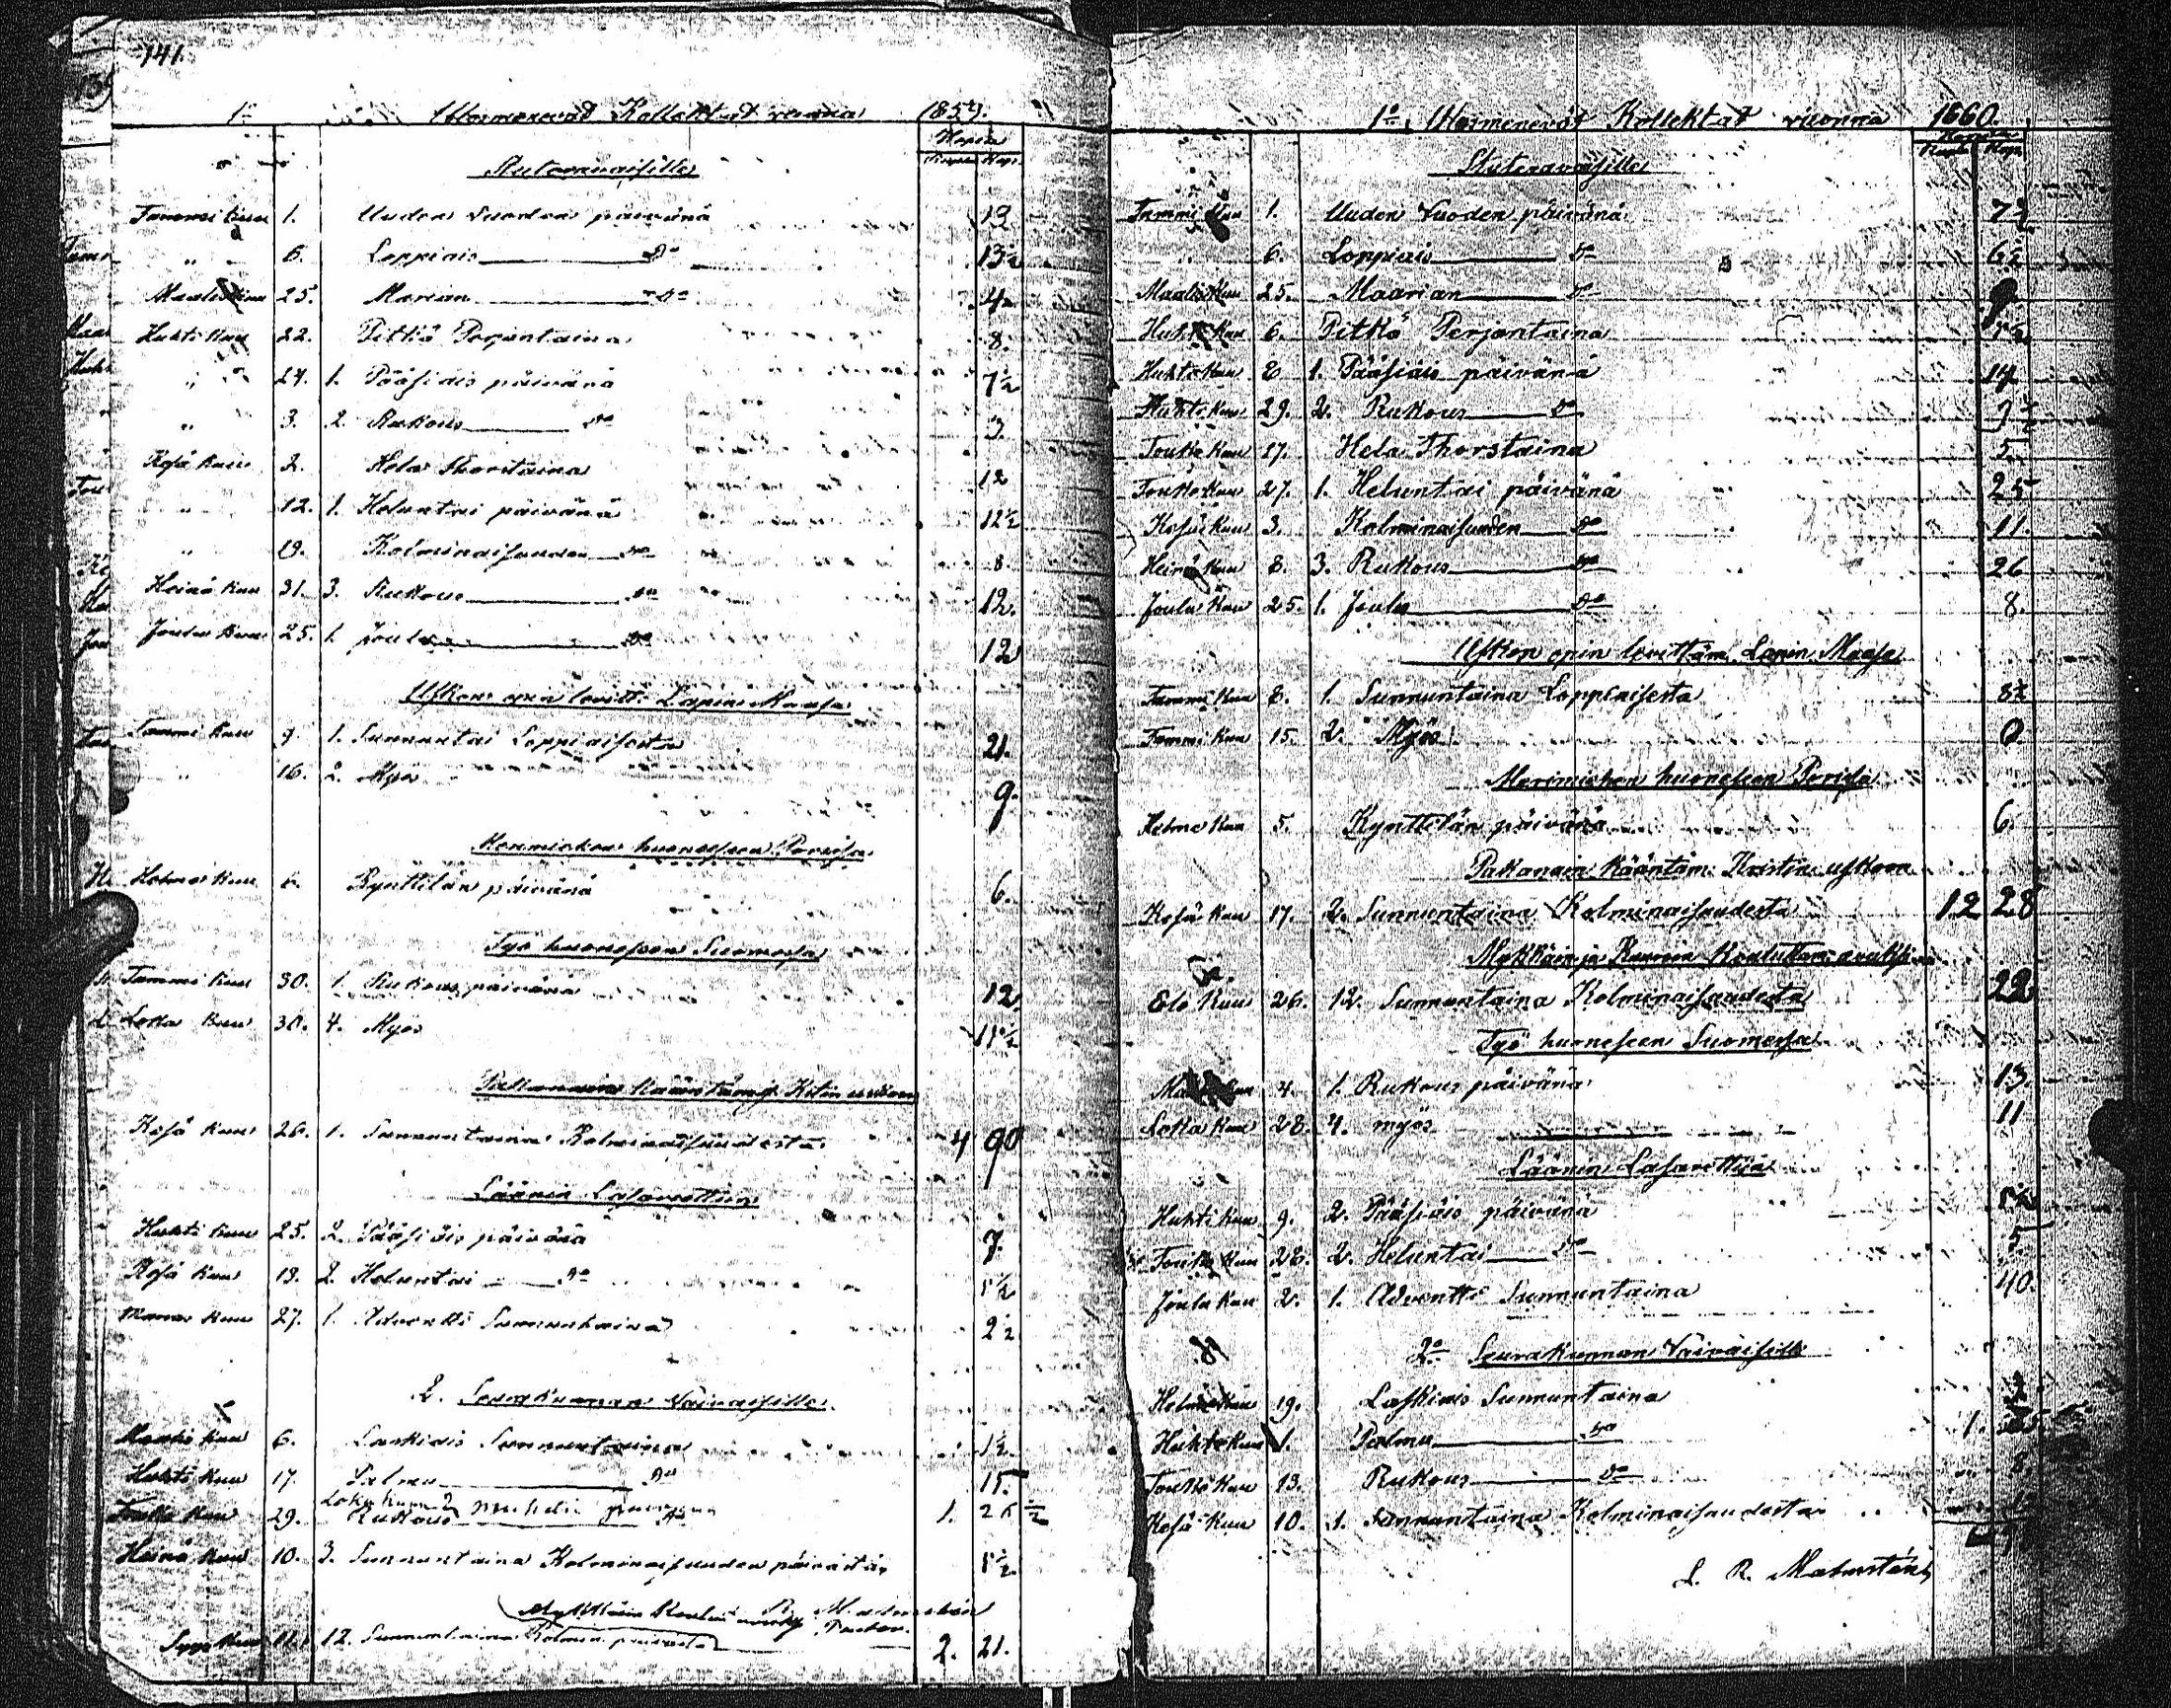 141.
1o Ulosmenevät Kollektat vuonna 1859.
Hopia
Rupl. Kop.
Tammi kuu 1. Uuden Vuoden päivänä 13
" 6. Loppiais Do 13½
Maalis kuu 25. Marian Do 4½
Huhti kuu 22. Pitkä Perjantaina 8.
" 24. 1. Pääsiäis päivänä 7½
" 3. 2. Rukous Do 3.
Kesä kuu 2. Hela Thorstaina 12
" 12. 1. Heluntai päivänä 12½
" 19. Kolminaisuuden Do 8.
Heinä kuu 31. 3. Rukous Do 12.
Joulu kuu 25. 1. Joulu Do 12
Uskon opin levitt. Lapin Maasa
Tammi kuu 9. 1. Sunnuntai Loppiaisesta 21.
" 16. 2. Myös 9.
Merimiehen huoneseen Porisa
Helme kuu 6. Kynttilän päivänä 6.
Työ huoneseen Suomessa
Tammi kuu 30. 1. Rukous päivänä 12
Loka kuu 30. 4. Myös 11½
Pakanain kääntäm.
Kesä kuu 26. 1. Sunnuntaina Kolminaisuudesta 4 90
Läänin Lasarettiin
Huhti kuu 25. 2. Pääsiäis päivänä 7.
Kesä kuu 13. 2. Heluntai Do
Marras kuu 27. 1. Adventti Sunnuntaina 2½
2. Seurakunnan Vaivaisille
Maalis kuu 6. Laskiais Sunnuntaina 1½
Huhti kuu 17. Palmu Do 15.
Touko kuu 29. Rukous Do 1. 26 ½
Heinä kuu 10. 3. Sunnuntaina Kolminaisuuden päivästä
Syys kuu 11. 12. Sunnuntaina 2. 21.
1o Ulosmenevät Kollektat vuonna 1860.
Hopia
Rupl. Kop.
Tammi kuu 1. Uuden Vuoden päivänä 7½
" 6. Loppiais Do 6½
Maalis kuu 25. Maarian Do 9
Huhti kuu 6. Pitkä Perjantaina
Huhti kuu 8 1. Pääsiäis päivänä 14
Huhti kuu 29. 2. Rukous Do
Touko kuu 17. Hela Thorstaina 5.
Touko kuu 27. 1. Heluntai päivänä 25
Kesä kuu 3. Kolminaisuuden Do 11.
Heinä kuu 8. 3. Rukous Do 26
Joulu kuu 25. 1. Joulu Do 8.
Uskon opin levittäm. Lapin Maasa
Tammi kuu 8. 1. Sunnuntaina Loppiaisesta 8½
Tammi kuu 15. 2. Myös 0
Merimiehen huoneseen Porisa
Helme kuu 5. Kynttilän päivänä 6.
Pakanain kääntäm. Kristin. uskoon
Kesä kuu 17. 2. Sunnuntaina Kolminaisuudesta 12 28
Mykkäin ja Kuuroin Kouluttam. avuksi
Elo kuu 26. 12. Sunnuntaina Kolminaisuudesta 22
Työ huoneseen Suomessa
4. 1. Rukous päivänä 13
Loka kuu 28. 4. myös 11
Läänin Lasarettiin
Huhti kuu 9. 2. Pääsiäis päivänä
Touko kuu 28. 2. Heluntai Do 5.
Joulu kuu 2. 1. Adventti Sunnuntaina 40.
2o Seurakunnan Vaivaisille
Helme kuu 19. Laskiais Sunnuntaina
Huhti kuu 1. Palmu Do 1.
Touko kuu 13. Rukous Do 8
Kesä kuu 10. 1. Sunnuntaina Kolminaisuudesta